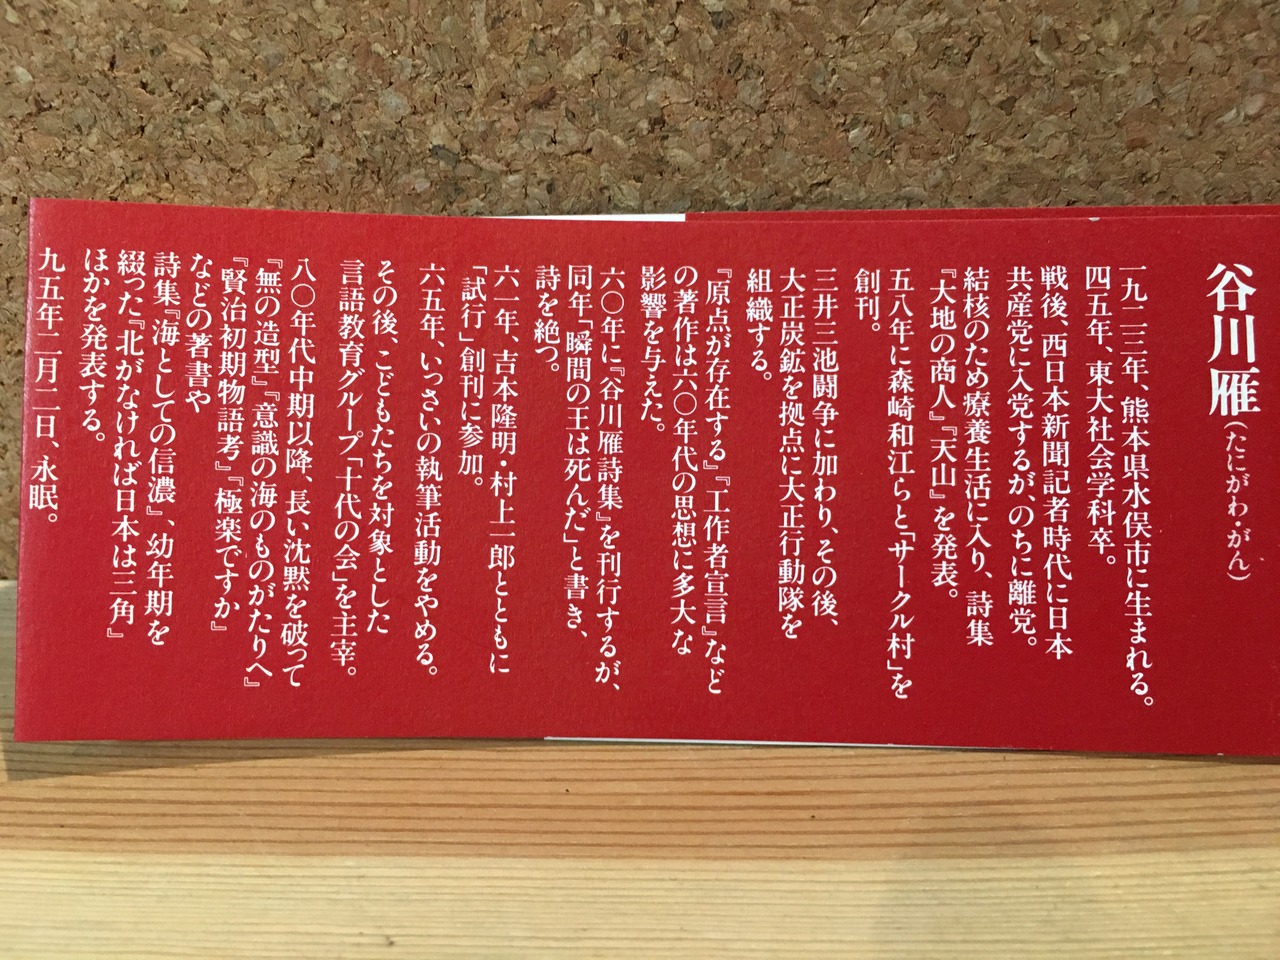 谷川雁(たにがわ・がん)
一九二三年、熊本県水俣市に生まれる。
四五年、東大社会学科卒。
戦後、西日本新聞記者時代に日本
共産党に入党するが、のちに離党。
結核のため療養生活に入り、詩集
『大地の商人』『天山』を発表。
五八年に森崎和江らと「サークル村」を
創刊。
三井三池闘争に加わり、その後、
大正炭鉱を拠点に大正行動隊を
組織する。
『原点が存在する』『工作者宣言』など
の著作は六〇年代の思想に多大な
影響を与えた。
六〇年に『谷川雁詩集』を刊行するが、
同年「瞬間の王は死んだ」と書き、
詩を絶つ。
六一年、吉本隆明・村上一郎とともに
「試行」創刊に参加。
六五年、いっさいの執筆活動をやめる。
その後、こどもたちを対象とした
言語教育グループ「十代の会」を主宰。
八〇年代中期以降、長い沈黙を破って
『無の造型』『意識の海のものがたりへ』
『賢治初期物語考』『極楽ですか』
などの著書や
詩集『海としての信濃』、幼年期を
綴った『北がなければ日本は三角』
ほかを発表する。
九五年二月二日、永眠。